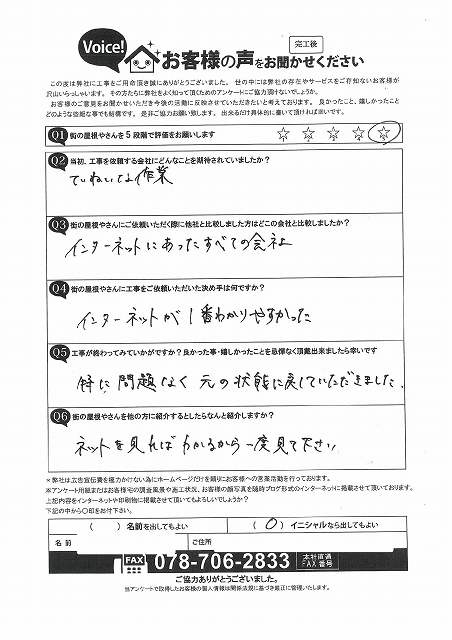 Voice!
完工後
お客様の声をお聞かせください
この度は弊社に工事をご用命頂き誠にありがとうございました。世の中には弊社の存在やサービスをご存知ないお客様が
沢山いらっしゃいます。その方たちに弊社をよく知って頂くためのアンケートにご協力頂けないでしょうか。
お客様のご意見をお聞かせいただき今後の活動に反映させていただきたいと考えております。良かったこと、嬉しかったこと
どのような些細な事でも結構です。是非ご協力お願い致します。出来るだけ具体的に書いて頂ければ幸いです。
Q1 街の屋根やさんを5段階で評価をお願いします
☆ ☆ ☆ ☆ ☆
Q2 当初、工事を依頼する会社にどんなことを期待されていましたか?
ていねいな作業
Q3 街の屋根やさんにご依頼いただく際に他社と比較しました方はどこの会社と比較しましたか?
インターネットにあったすべての会社
Q4 街の屋根やさんに工事をご依頼いただいた決め手は何ですか?
インターネットが1番わかりやすかった
Q5 工事が終わってみていかがですか?良かった事・嬉しかったことを忌憚なく頂戴出来ましたら幸いです
特に問題なく元の状態に戻していただきました.
Q6 街の屋根やさんを他の方に紹介するとしたらなんと紹介しますか?
ネットを見ればわかるから一度見て下さい
*弊社は広告宣伝費を極力かけない為にホームページだけを頼りにお客様への営業活動を行っております。
※アンケート用紙またはお客様宅の調査風景や施工状況、お客様の顔写真を随時ブログ形式のインターネットに掲載させて頂いております。
上記内容をインターネットや印刷物に掲載させて頂いてもよろしいでしょうか?
下記の中から〇印をお付下さい。
( ) 名前を出してもよい
( 〇 ) イニシャルなら出してもよい
名前
ご住所
FAX 078-706-2833 本社直通
FAX番号
ご協力ありがとうございました。
当アンケートで取得したお客様の個人情報は関係法規に基づき厳正に管理いたします。